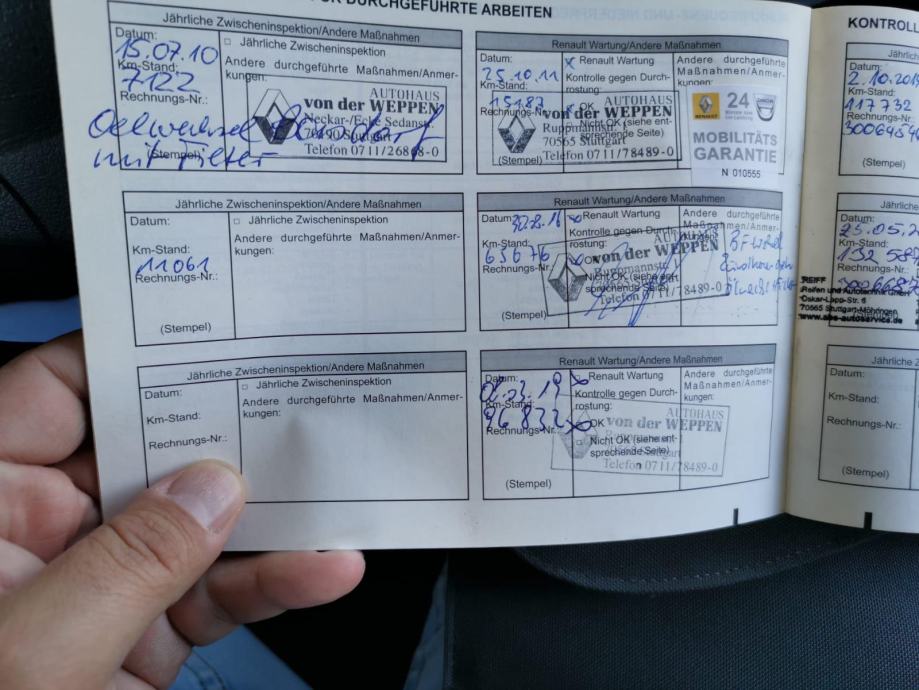 DURCHGEFÜHRTE ARBEITEN
Jährliche Zwischeninspektion/Andere Maßnahmen
Datum:
15.07.10
Km-Stand:
7122
Rechnungs-Nr.:
□ Jährliche Zwischeninspektion
Andere durchgeführte Maßnahmen/Anmer-
kungen:
AUTOHAUS
von der WEPPEN
Neckar-/Ecke Sedanstr.
70190 Stuttgart
Telefon 0711/26868-0
Oelwechsel
mit Filter
(Stempel)
Renault Wartung/Andere Maßnahmen
Datum:
25.10.11
Km-Stand:
15187
Rechnungs-Nr.:
x Renault Wartung
Kontrolle gegen Durch-
rostung:
x OK
Nicht OK (siehe ent-
sprechende Seite)
Andere durchgeführte
Maßnahmen/Anmer-
kungen:
AUTOHAUS
von der WEPPEN
Ruppmannstr.
70565 Stuttgart
Telefon 0711/78489-0
(Stempel)
RENAULT
24
DACIA
MOBILITÄTS
GARANTIE
N 010555
Jährliche Zwischeninspektion/Andere Maßnahmen
Datum:
Km-Stand:
11061
Rechnungs-Nr.:
(Stempel)
□ Jährliche Zwischeninspektion
Andere durchgeführte Maßnahmen/Anmer-
kungen:
Renault Wartung/Andere Maßnahmen
Datum:
30.8.16
Km-Stand:
63676
Rechnungs-Nr.:
x Renault Wartung
Kontrolle gegen Durch-
rostung:
OK
Nicht OK (siehe ent-
sprechende Seite)
Andere durchgeführte
Maßnahmen/Anmer-
kungen:
AUTOHAUS
von der WEPPEN
Ruppmannstr.
Telefon 0711/78489-0
(Stempel)
Jährliche Zwischeninspektion/Andere Maßnahmen
Datum:
Km-Stand:
Rechnungs-Nr.:
□ Jährliche Zwischeninspektion
Andere durchgeführte Maßnahmen/Anmer-
kungen:
Renault Wartung/Andere Maßnahmen
Datum:
Km-Stand:
96832
Rechnungs-Nr.:
x Renault Wartung
Kontrolle gegen Durch-
rostung:
x OK
□ Nicht OK (siehe ent-
sprechende Seite)
Andere durchgeführte
Maßnahmen/Anmer-
kungen:
AUTOHAUS
von der WEPPEN
Stuttgart
Telefon 0711/78489-0
(Stempel)
KONTROLL
Jährlich
Datum:
Km-Stand:
117732
Rechnungs-Nr.:
(Stempel)
Jährlich
Datum:
25.05.2
Km-Stand:
Rechnungs-Nr.:
REIFF
Reifen und Autotechnik GmbH
Oskar-Lapp-Str. 6
70565 Stuttgart-Möhringen
www.abs-autoservice.de
Jährliche Z
Datum:
Km-Stand:
Rechnungs-Nr.:
(Stempel)